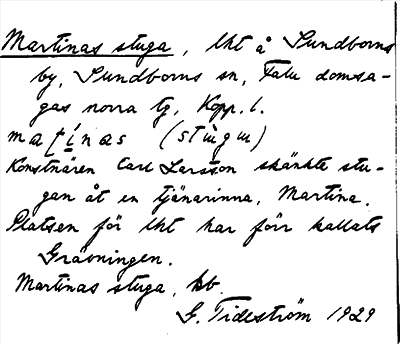 Martinas stuga, lht å Sundborns
by, Sundborns sn, Falu domsa-
gas norra tg, Kopp. l.
mat̨i̱nas (stùgu)
Konstnären Carl Larsson skänkte stu-
gan åt en tjänarinna, Martina.
Platsen för lht har förr kallats
Grävningen.
Martinas stuga, kb.
G. Tideström 1929